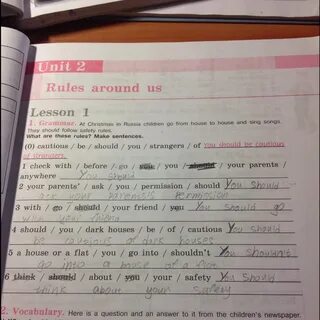 Unit 2
Rules around us
Lesson 1
1. Grammar. At Christmas in Russia children go from house to house and sing songs.
They should follow safety rules.
What are these rules? Make sentences.
(0) cautious / be / should / you / strangers / of You should be cautious
of strangers.
1 check with / before / go / / you / should / your parents /
anywhere You should
2 your parents' / ask / you / permission / should You should
ask your parents's permission
3 with / go / should / your friend / you You should go
with your friend
4 should / you / dark houses / be / of / cautious You should
be cautious of dark houses
5 a house or a flat / you / go into / shouldn't You shouldn't
go into a house or a flat
6 think / should / about / you / your / safety You should
think about your safety
2. Vocabulary. Here is a question and an answer to it from the children's newspaper.